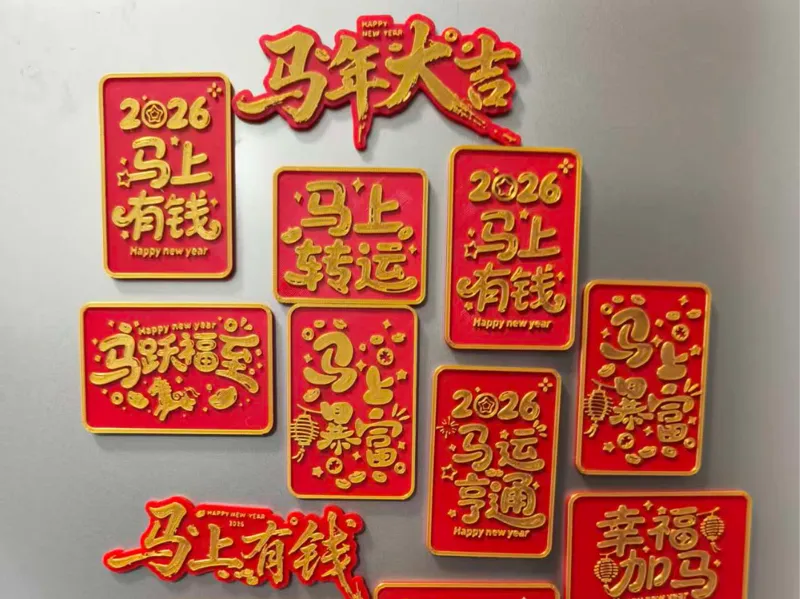 HAPPY
NEW YEAR
马年大吉
2026
马上
有钱
Happy new year
马上
转运
2026
马上
有钱
Happy new year
Happy new year
马跃福至
马上
暴富
马上
暴富
2026
马运
亨通
Happy new year
HAPPY NEW YEAR
2026
马上有钱
幸福
加马